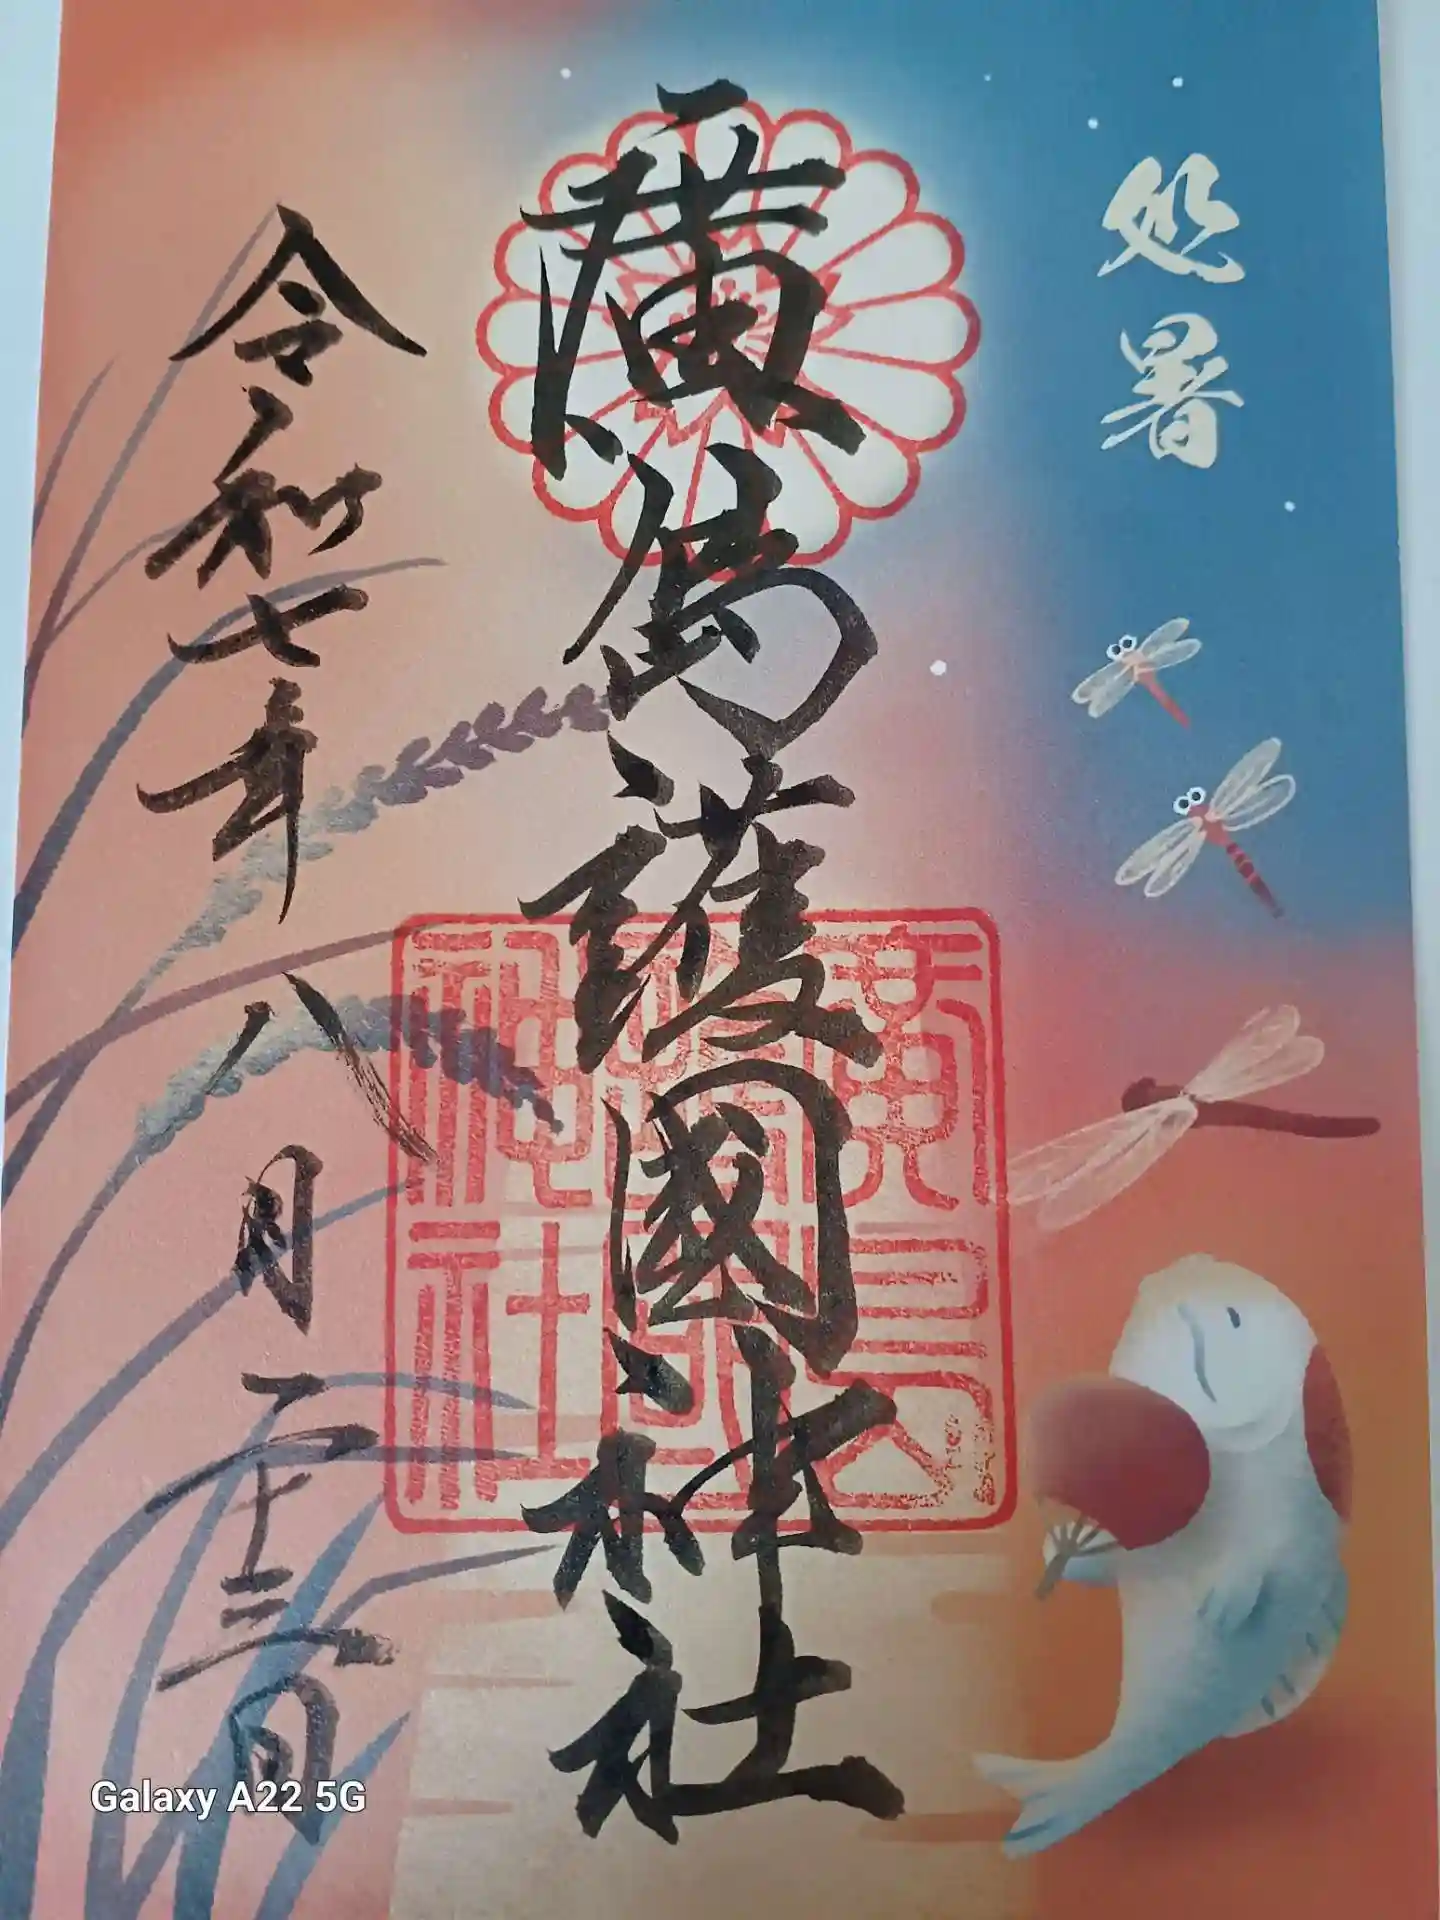 処暑
廣島護國神社
令和七年八月二十三日
廣島護國神社
Galaxy A22 5G